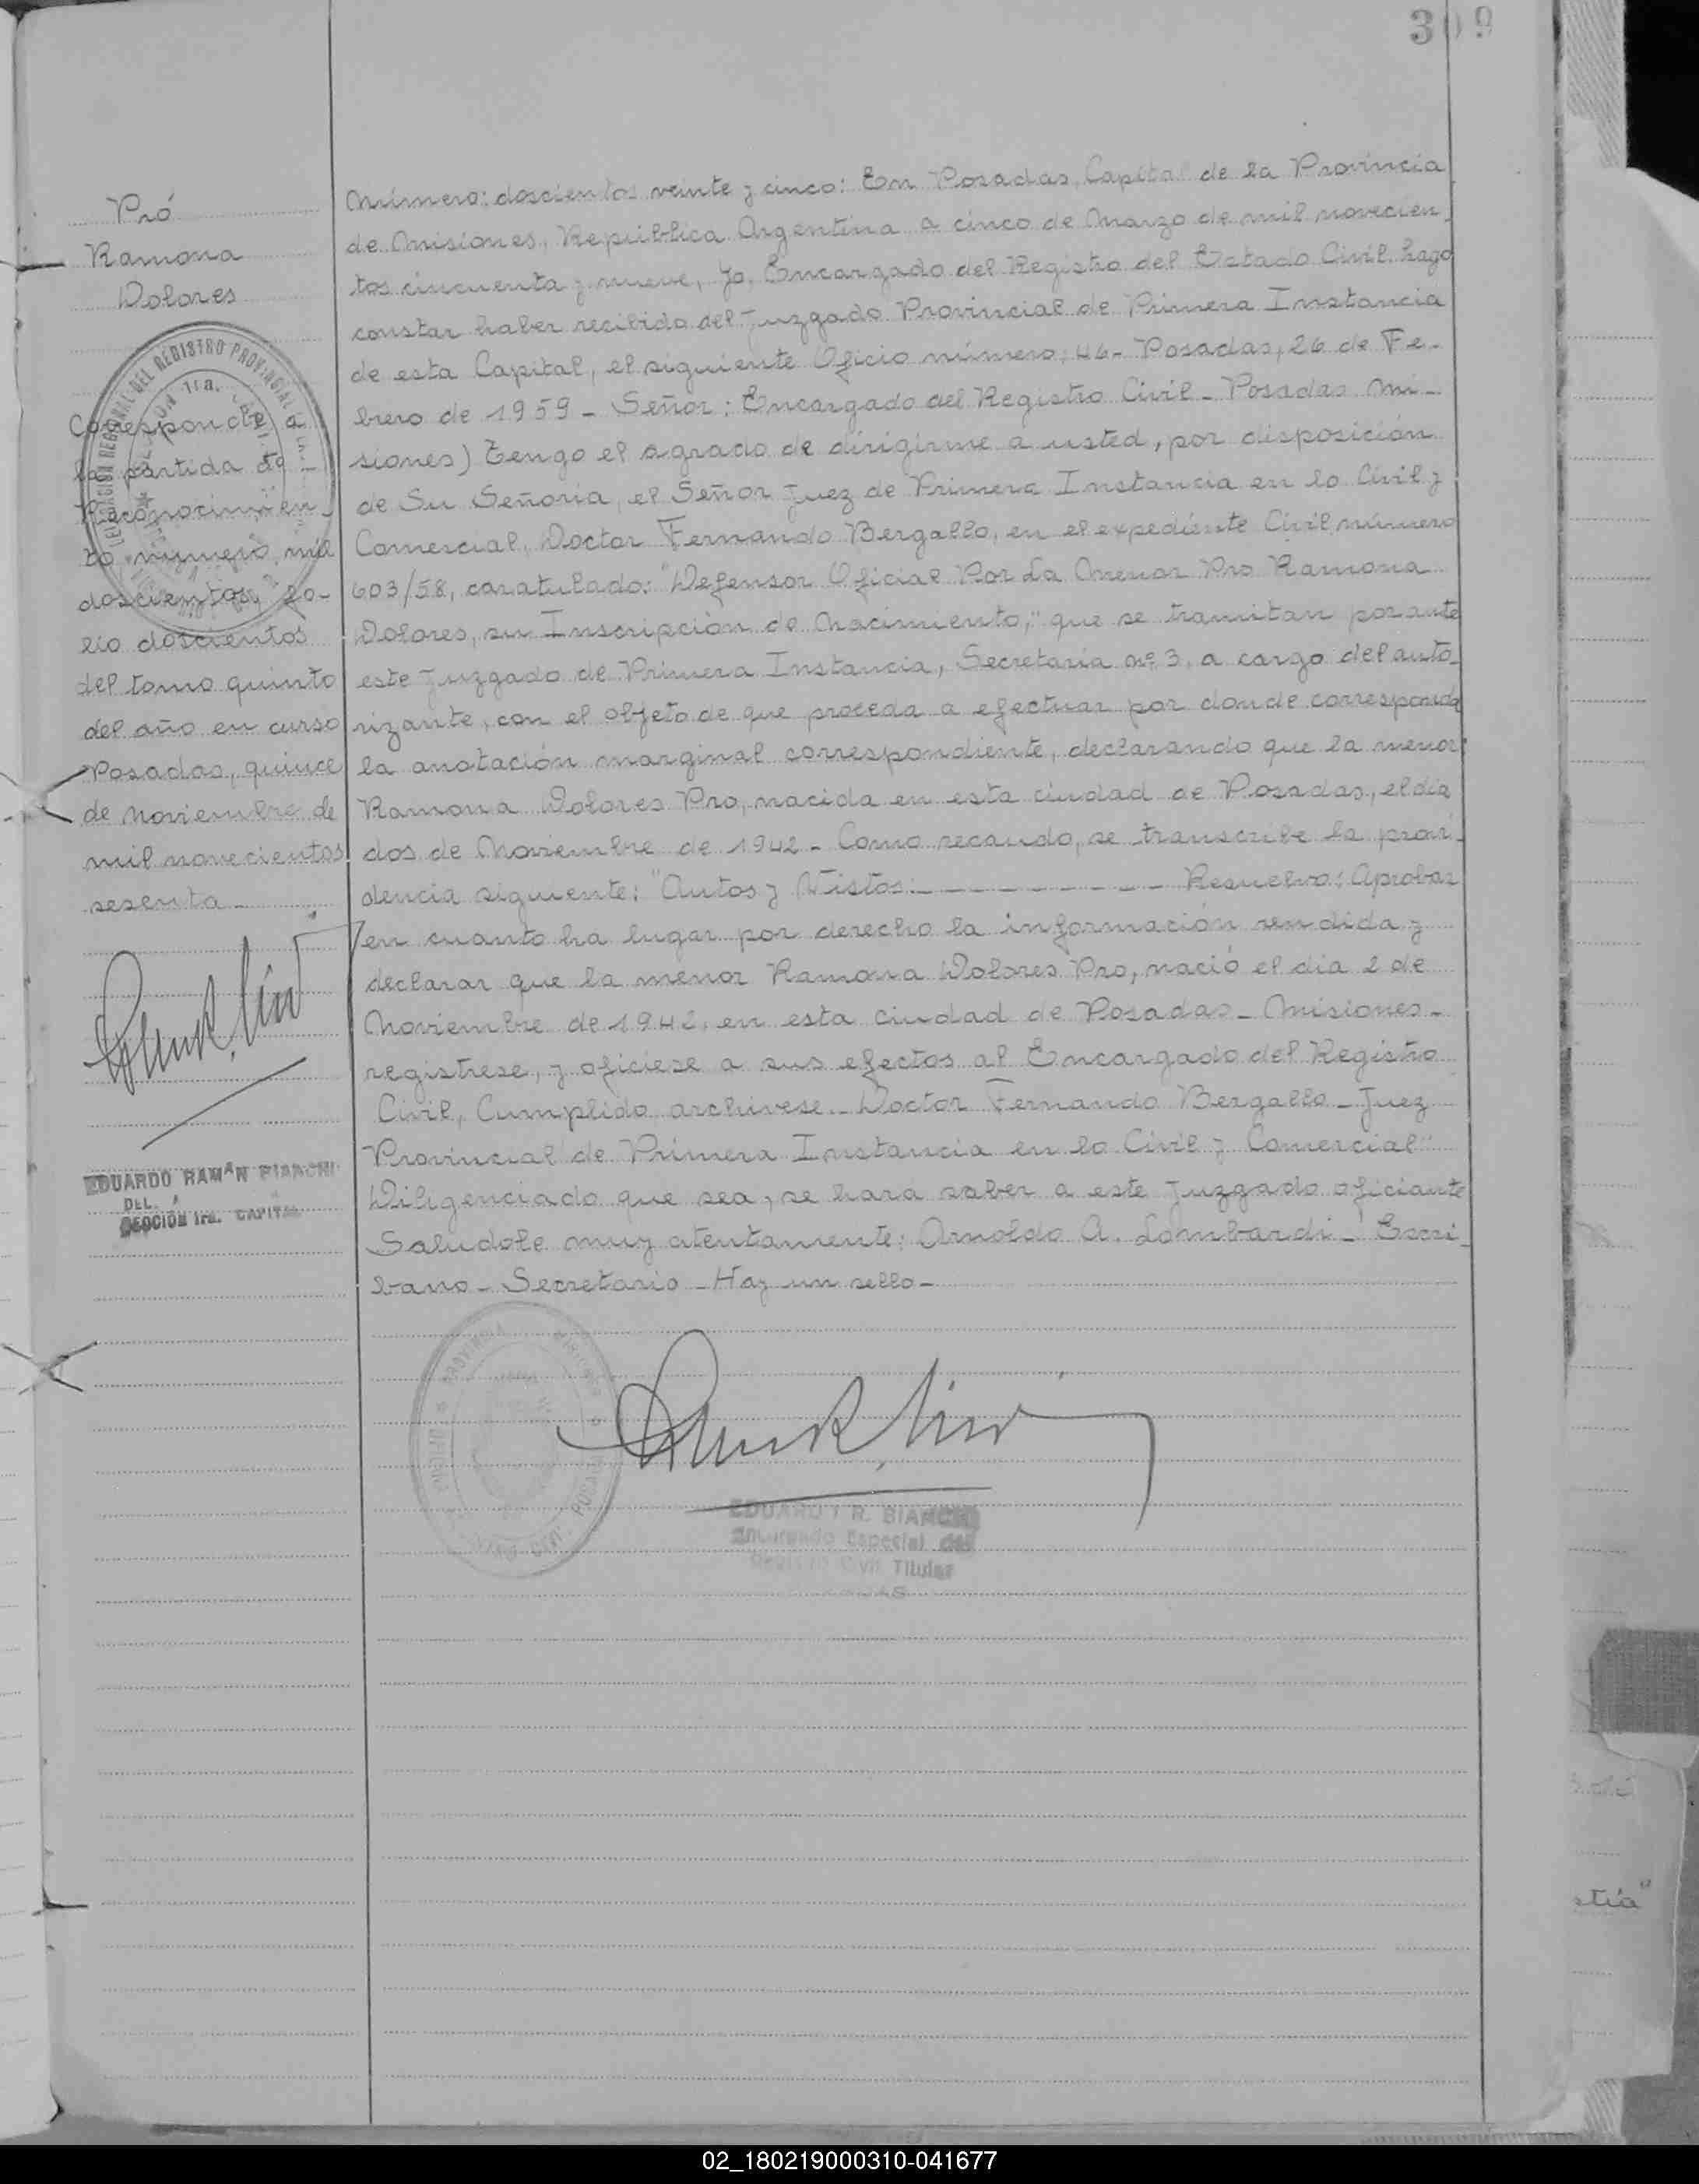 309
Pró
Ramona
Dolores
DELEGACION REGIONAL DEL REGISTRO PROVINCIAL
1ra.
Corresponde a
la partida de
Reconocimien-
to numero mil
doscientos, fo-
lio doscientos
del tomo quinto
del año en curso
Posadas, quince
de Noviembre de
mil novecientos
sesenta-
EDUARDO RAMÓN BIANCHI
DEL.
SECCIÓN 1ra. CAPITAL
Número: doscientos veinte y cinco: En Posadas, Capital de la Provincia
de Misiones, República Argentina a cinco de Marzo de mil novecien-
tos cincuenta y nueve, Yo, Encargado del Registro del Estado Civil. hago
constar haber recibido del Juzgado Provincial de Primera Instancia
de esta Capital, el siguiente Oficio número; 46- Posadas, 26 de Fe-
brero de 1959 - Señor: Encargado del Registro Civil - Posadas Mi-
siones) Tengo el agrado de dirigirme a usted, por disposición
de Su Señoria, el Señor Juez de Primera Instancia en lo Civil y
Comercial, Doctor Fernando Bergallo, en el expediente Civil, número
603/58, caratulado: "Defensor Oficial Por La Menor Pro Ramona
Dolores, su Inscripción de Nacimiento," que se tramitan por ante
este Juzgado de Primera Instancia, Secretaría nº 3, a cargo del auto-
rizante, con el objeto de que proceda a efectuar por donde corresponda
la anotación marginal correspondiente, declarando que la menor
Ramona Dolores Pro, nacida en esta ciudad de Posadas, el día
dos de Noviembre de 1942 - Como recaudo, se transcribe la provi-
dencia siguiente: "Autos y Vistos: - - - - - - - - - Resuelvo: Aprobar
en cuanto ha lugar por derecho la información rendida y
declarar que la menor Ramona Dolores Pro, nació el día 2 de
Noviembre de 1942, en esta ciudad de Posadas - Misiones -
registrese, y oficiese a sus efectos al Encargado del Registro
Civil, Cumplido archivese - Doctor Fernando Bergallo - Juez
Provincial de Primera Instancia en lo Civil y Comercial"
Diligenciado que sea, se hará saber a este Juzgado oficiante
Saludole muy atentamente: Arnoldo A. Lombardi - Escri-
bano - Secretario - Hay un sello -
PROVINCIA MISIONES
POSADAS
EDUARDO R. BIANCHI
Encargado Especial del
Registro Civil Titular
02_180219000310-041677